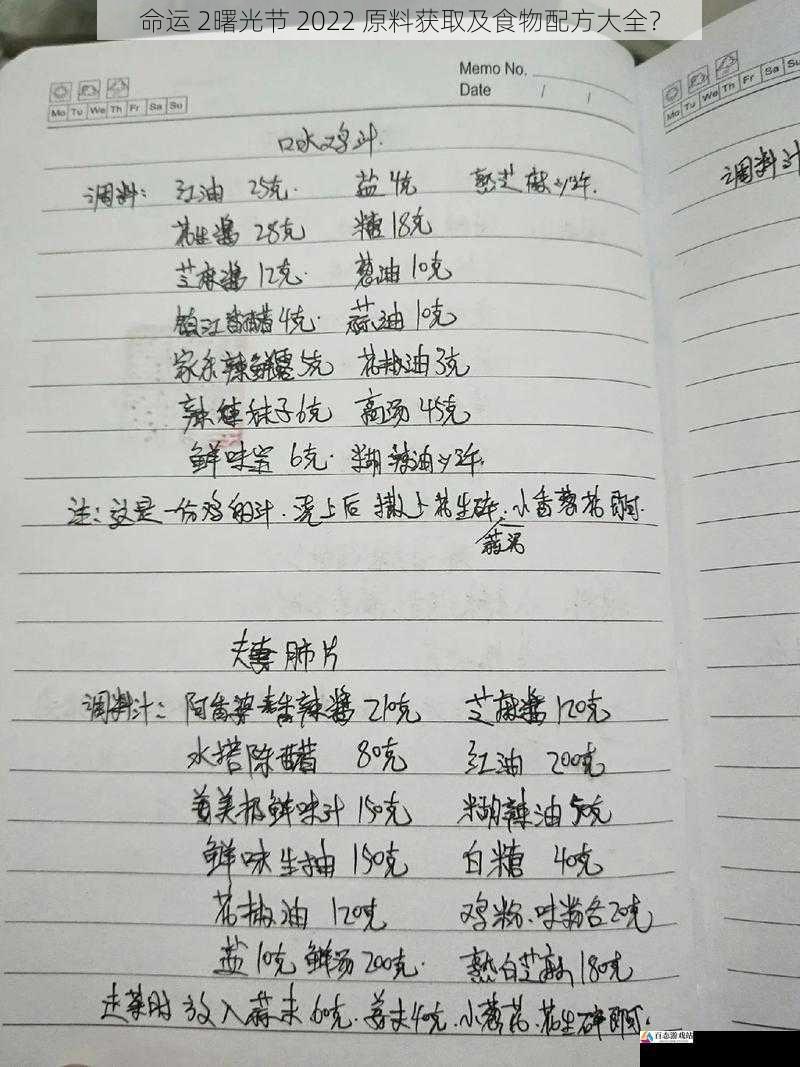 命运 2曙光节 2022 原料获取及食物配方大全？
Memo No.
Date / /
Mo Tu We Th Fr Sa Su
Mo Tu We Th Fr Sa Su
口水鸡汁.
调料: 红油 25克. 盐 4克 熟芝麻少许.
花生酱 28克 糖 18克
芝麻酱 12克. 葱油 10克
镇江香醋 4克. 蒜油 10克
家乐辣鲜露 5克 花椒油 3克
辣 6克 高汤 45克
鲜味宝 6克. 糊辣油少许.
注: 这是一份鸡的汁. 浇上后 撒上花生碎. 小香葱花即可.
蒜泥
调料汁
夫妻肺片
调料汁: 阿香婆香辣酱 210克 芝麻酱 120克
水塔陈醋 80克 红油 200克
美极鲜味汁 150克 糊辣油 50克
鲜味生抽 150克 白糖 40克
花椒油 120克 鸡粉、味粉各20克
盐 10克 鲜汤 200克. 熟白芝麻 180克
走菜时 放入蒜末 60克. 姜末 40克. 小葱花. 花生碎即可.
百态游戏站